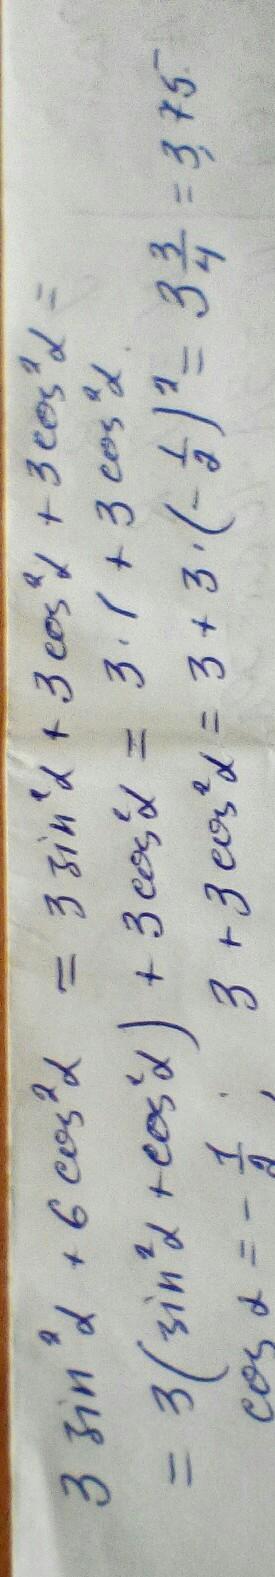 3 sin²α + 6 cos²α = 3 sin²α + 3cos²α + 3cos²α =
= 3(sin²α + cos²α) + 3cos²α = 3·1 + 3cos²α.
cos α = -1/2; 3 + 3cos²α = 3 + 3·(-1/2)² = 3 3/4 = 3,75.